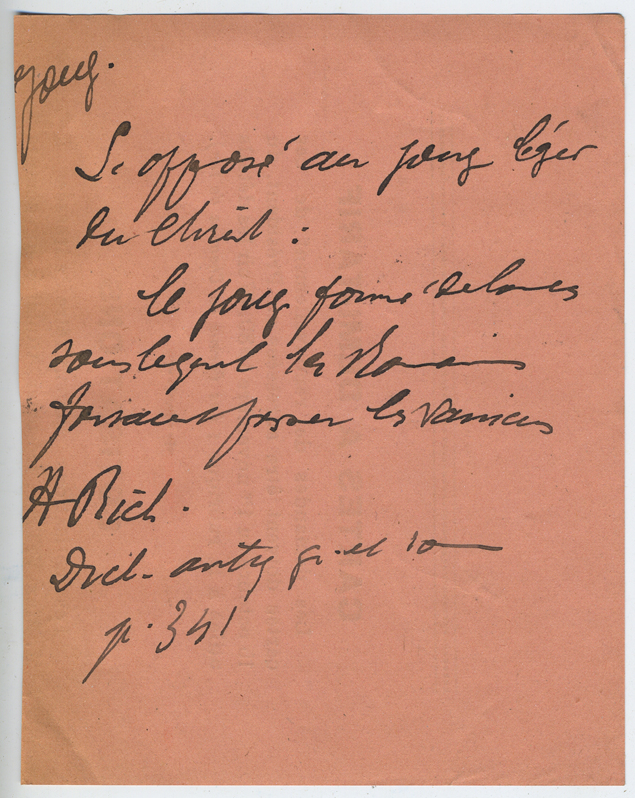 Joug.
S. opposé au joug léger
du Christ :
le joug formé de lances
sous lequel les Romains
faisaient passer les vaincus
A Rich.
Dict. antiq gr. et rom
p. 341